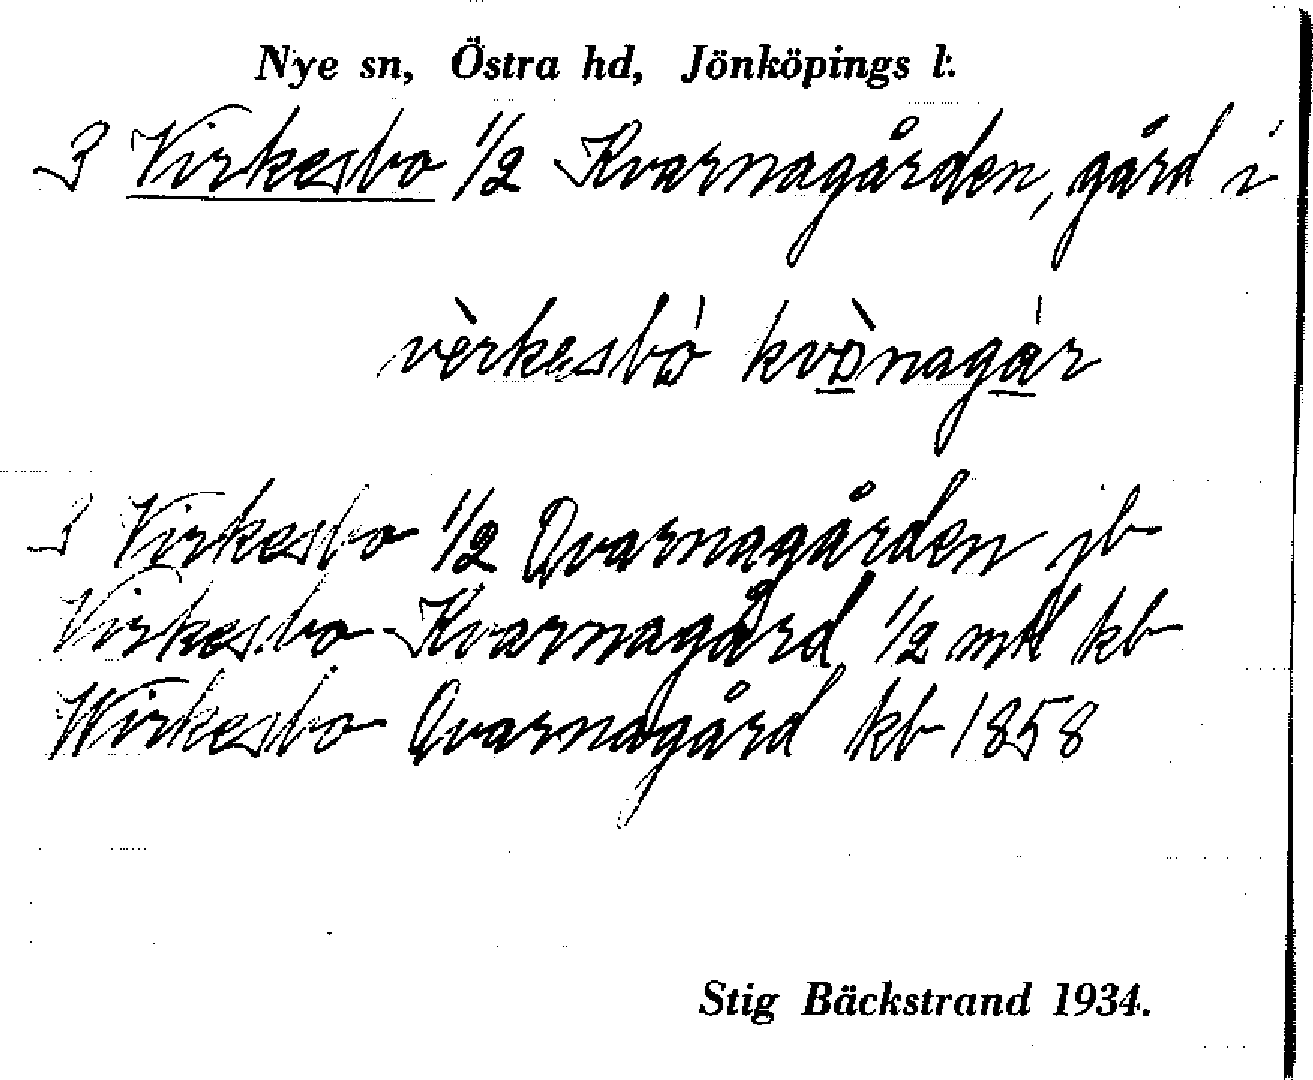 Nye sn, Östra hd, Jönköpings l:
3 Virkesbo 1/2 Kvarnagården, gård i
vèrkesbó kvònagár
3 Virkesbo 1/2 Qvarnagården jb
Virkesbo Kvarnagård 1/2 mtl kb
Wirkesbo Qvarnagård kb 1858
Stig Bäckstrand 1934.